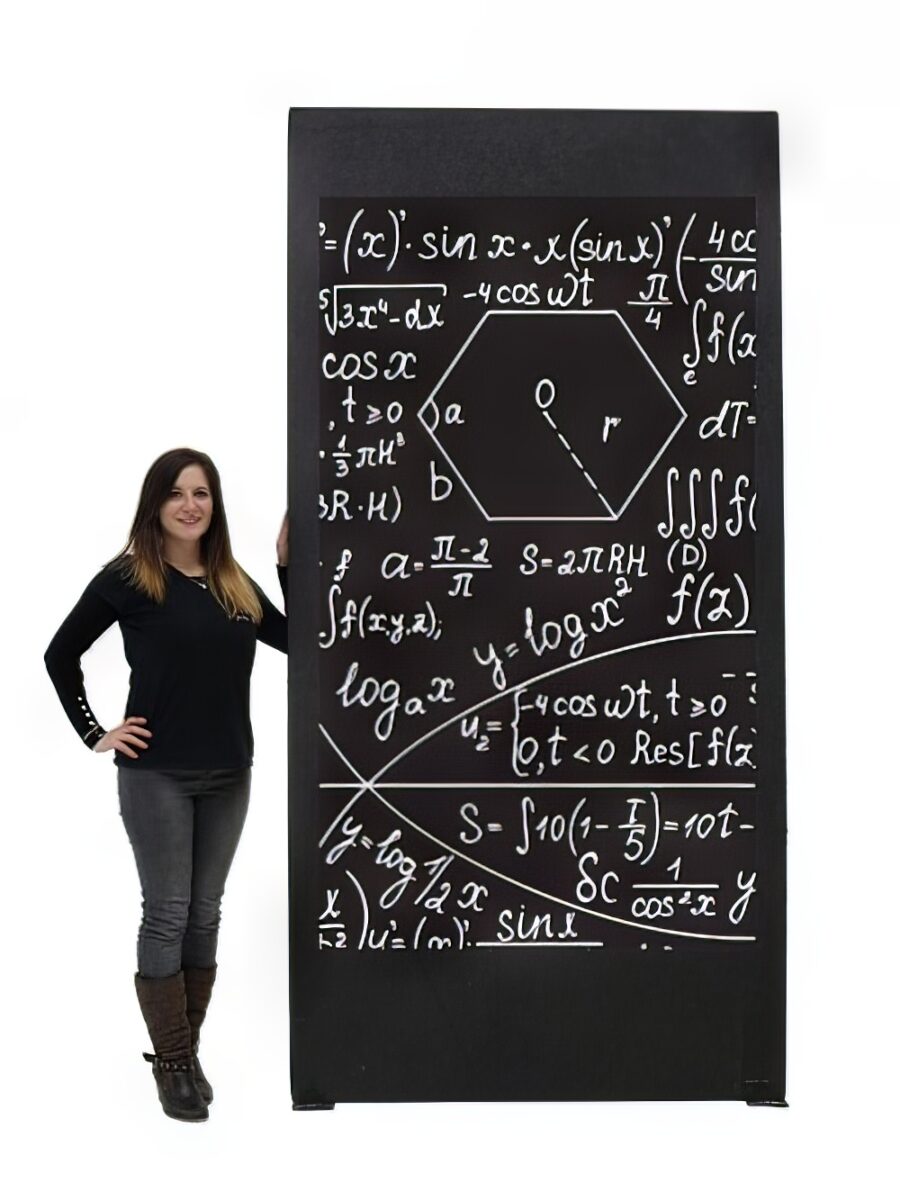 '=(x)'·sin x·x(sin x)'(-4α/sin
⁵√3x⁴-dx -4cos ωt π/4
cos x ∫e f(x
, t≥0 a O r dT=
·1/3 πH³ b
3R·H) ∫∫∫f(
(D)
· f a=π-2/π S=2πRH f(z)
∫f(x,y,z);
y=log x²
logₐx
u₂={-4cos ωt, t≥0
0, t<0 Res[f(z
S=∫10(1-T/5)=10t-
y=log 1/2 x δc 1/cos²x y
x/ u'=(m)'· sin x